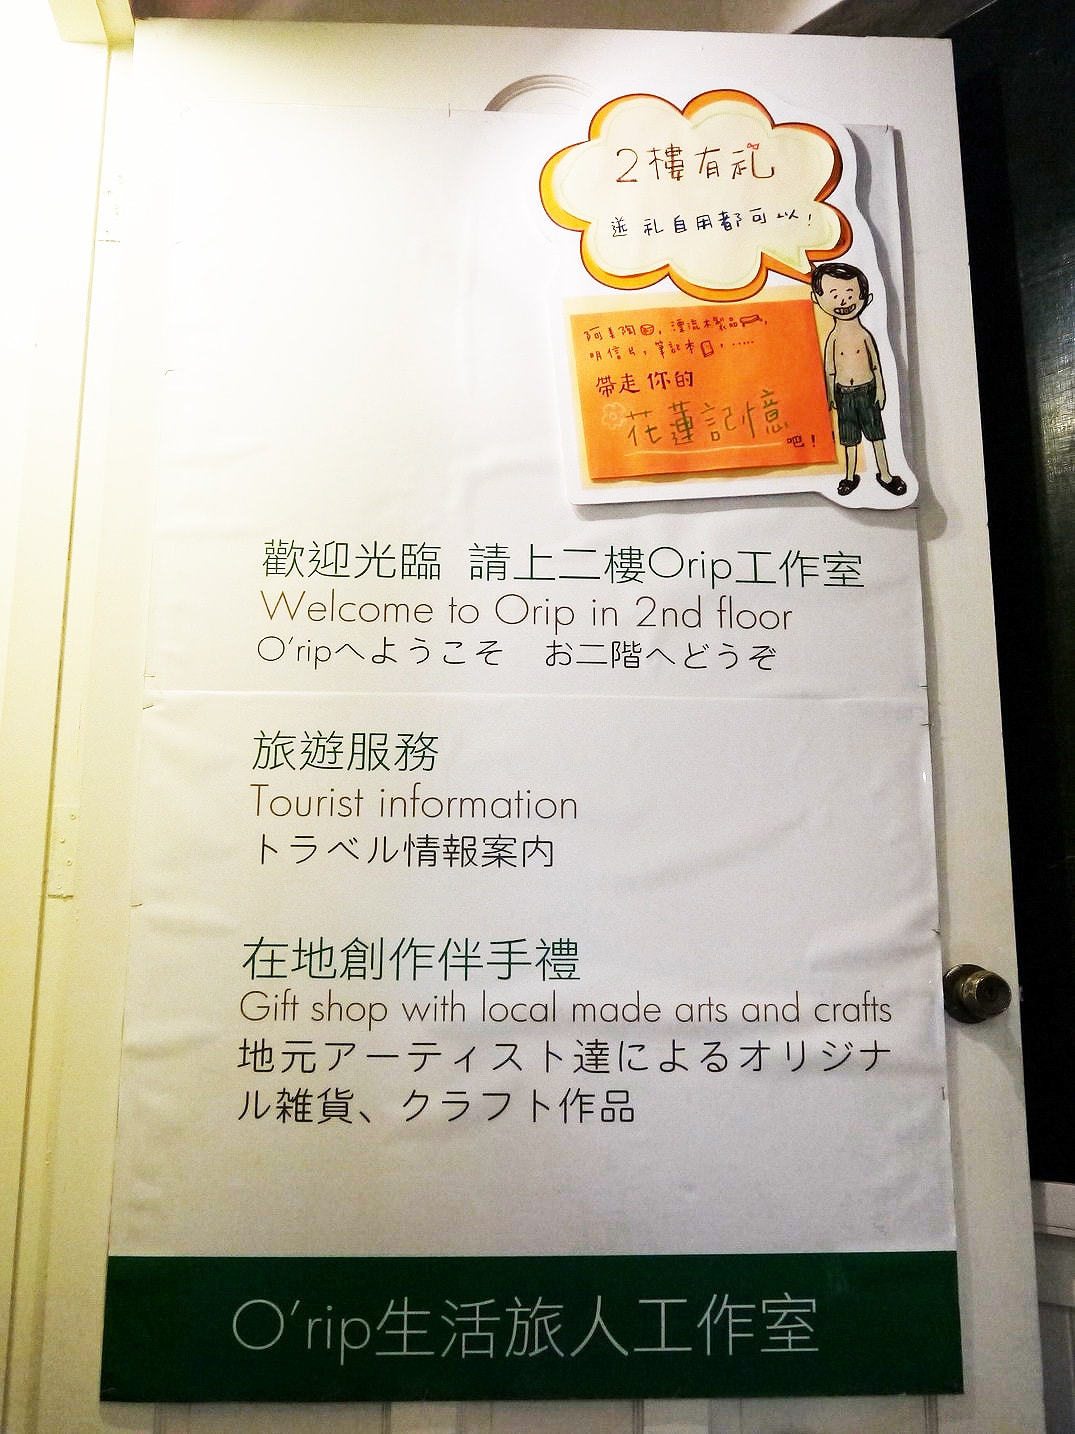 2樓有礼
送礼自用都可以!
阿美陶,漂流木製品,
明信片,筆記本,.....
帶走你的
花蓮記憶
吧!!
歡迎光臨 請上二樓Orip工作室
Welcome to Orip in 2nd floor
O'ripへようこそ お二階へどうぞ
旅遊服務
Tourist information
トラベル情報案内
在地創作伴手禮
Gift shop with local made arts and crafts
地元アーティスト達によるオリジナ
ル雑貨、クラフト作品
O'rip生活旅人工作室